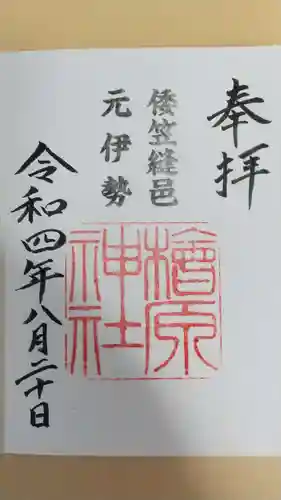 奉拝
倭笠縫邑
元伊勢
檜原
神社
令和四年八月二十日